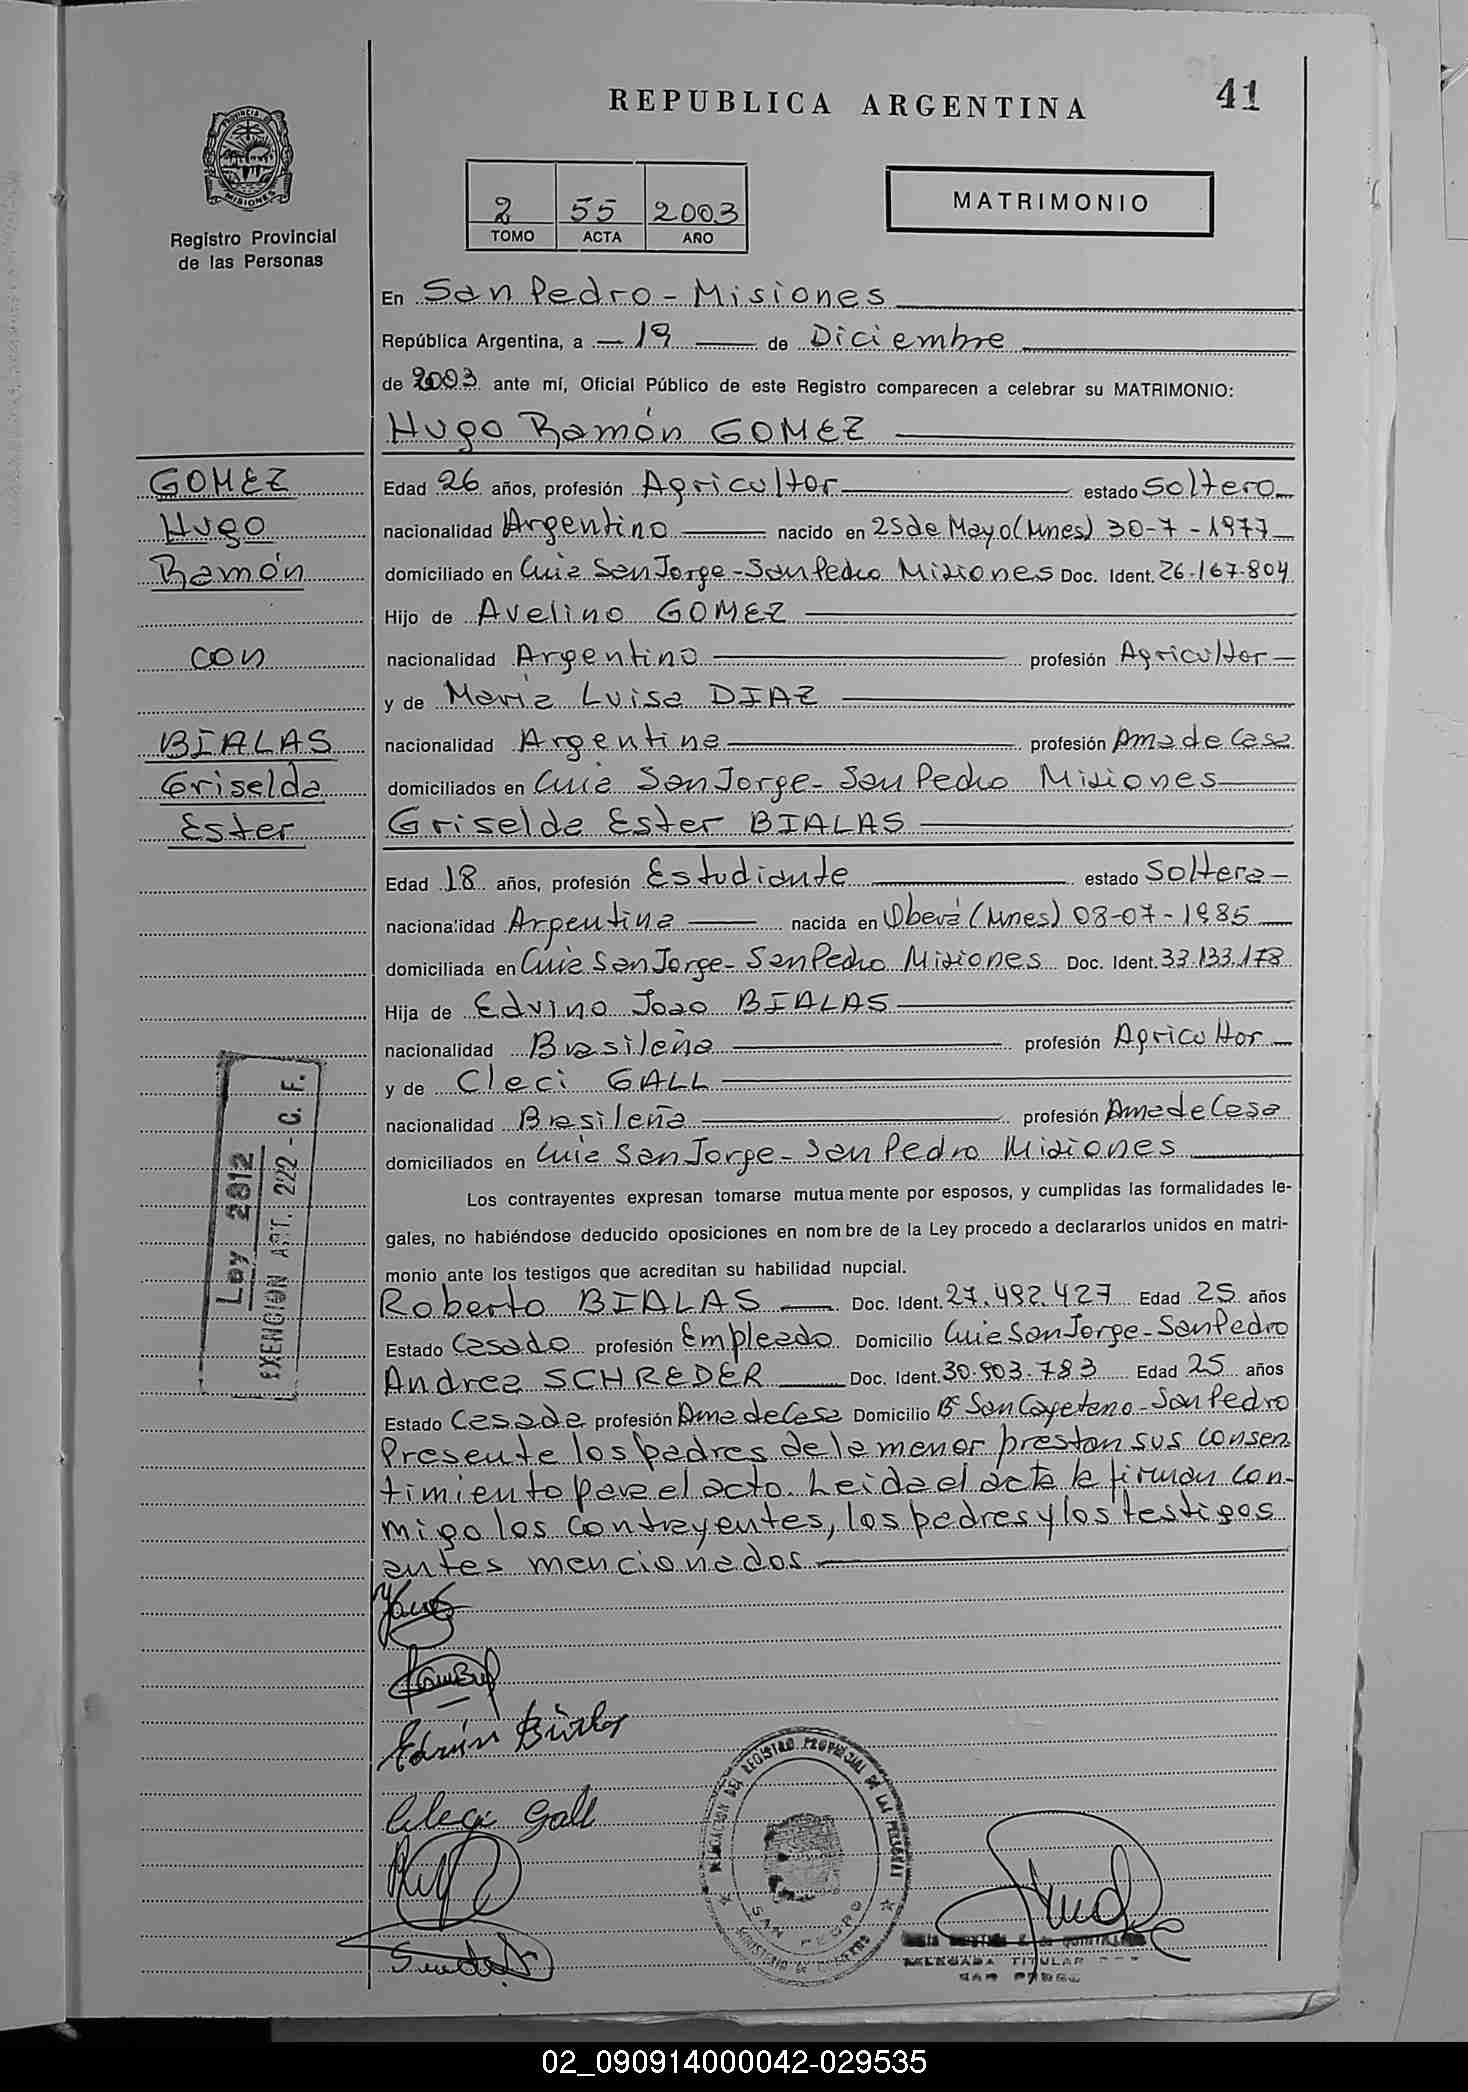 41
REPUBLICA ARGENTINA
PROVINCIA DE
MISIONES
Registro Provincial
de las Personas
2 55 2003
TOMO ACTA AÑO
MATRIMONIO
En San Pedro - Misiones
República Argentina, a - 19 - de Diciembre
de 2003 ante mí, Oficial Público de este Registro comparecen a celebrar su MATRIMONIO:
Hugo Ramón GOMEZ
GOMEZ
Hugo
Ramón
con
BIALAS
Griselda
Ester
Edad 26 años, profesión Agricultor estado Soltero
nacionalidad Argentino nacido en 25 de Mayo (Mnes) 30-7-1977
domiciliado en Cnia San Jorge - San Pedro Misiones Doc. Ident. 26.167.804
Hijo de Avelino GOMEZ
nacionalidad Argentino profesión Agricultor
y de María Luisa DIAZ
nacionalidad Argentina profesión Ama de Casa
domiciliados en Cnia San Jorge - San Pedro Misiones
Griselda Ester BIALAS
Edad 18 años, profesión Estudiante estado Soltera
nacionalidad Argentina nacida en Oberá (Mnes) 03-07-1985
domiciliada en Cnia San Jorge - San Pedro Misiones Doc. Ident. 33.133.178
Hija de Edvino Joao BIALAS
nacionalidad Brasileña profesión Agricultor
y de Cleci GALL
nacionalidad Brasileña profesión Ama de Casa
domiciliados en Cnia San Jorge - San Pedro Misiones
Ley 2812
EXENCION ART. 222 - C. F.
Los contrayentes expresan tomarse mutua mente por esposos, y cumplidas las formalidades le-
gales, no habiéndose deducido oposiciones en nom bre de la Ley procedo a declararlos unidos en matri-
monio ante los testigos que acreditan su habilidad nupcial.
Roberto BIALAS Doc. Ident. 27.492.427 Edad 25 años
Estado Casado profesión Empleado Domicilio Cnia San Jorge - San Pedro
Andrea SCHREDER Doc. Ident. 30.903.783 Edad 25 años
Estado Casada profesión Ama de Casa Domicilio Bº San Cayetano - San Pedro
Presente los padres de la menor prestan sus consen
timiento para el acto. Leida el acta la firman con-
migo los contrayentes, los padres y los testigos
antes mencionados
Cleci Gall
DELEGACION DEL REGISTRO PROVINCIAL DE LAS PERSONAS
SAN PEDRO
MINISTERIO DE GOBIERNO
DELEGADA TITULAR
SAN PEDRO
02_090914000042-029535